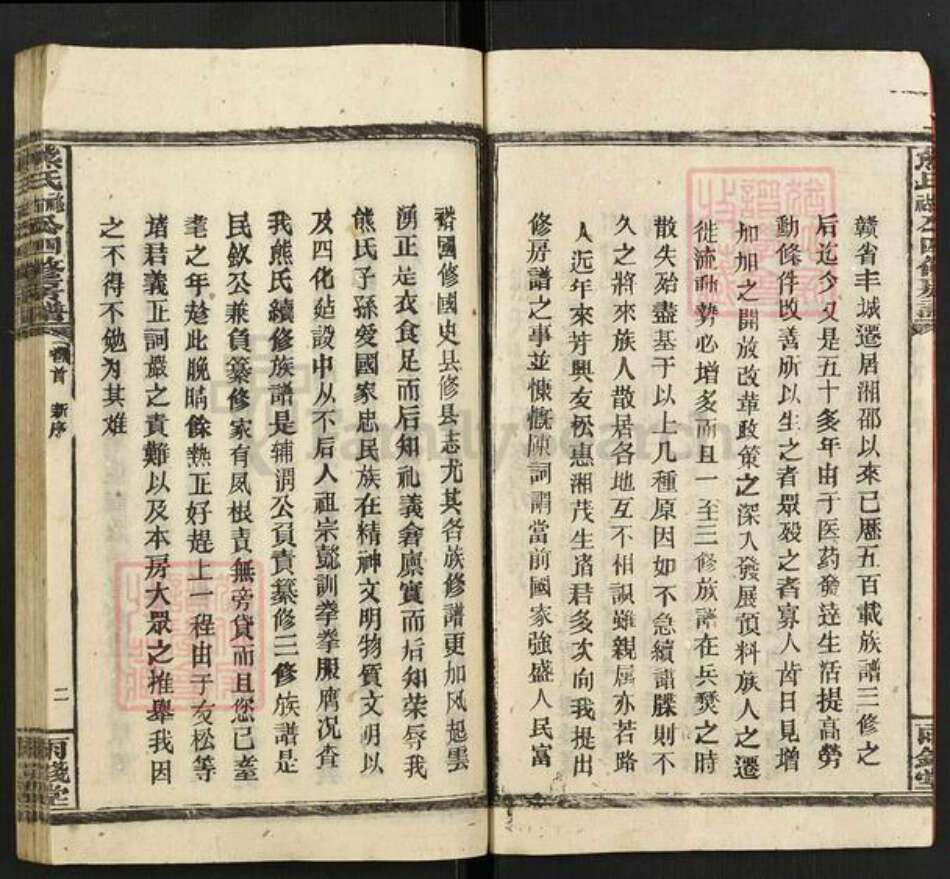 贛省丰城遷居湘邵以來已歷五百載族譜三修之
后迄今又是五十多年由于医药發達生活提高勞
動條件改善所以生之者眾殁之者寡人齿日見增
加加之開放改革政策之深入發展預料族人之遷
徙流動势必增多而且一至三修族譜在兵燹之時
散失殆盡基于以上几種原因如不急續譜牒則不
久之將來族人散居各地互不相識雖親属亦若路
人近年來芳興友松惠湘茂生诸君多次向我提出
修房譜之事並慷慨陳詞謂當前國家強盛人民富
裕國修國史县修县志尤其各族修譜更加风起雲
湧正是衣食足而后知礼義倉廪實而后知荣辱我
熊氏子孫爱國家忠民族在精神文明物質文明以
及四化建設中从不后人祖宗懿訓拳拳服膺况查
我熊氏續修族譜是辅渭公負責纂修三修族譜是
民欽公兼負纂修家有夙根責無旁貸而且您已耋
耄之年趁此晚晴餘熱正好趕上一程由于友松等
诸君義正詞嚴之責難以及本房大眾之推舉我因
之不得不勉为其难
熊氏 公四修房譜
卷首
新序
二
雨錢堂